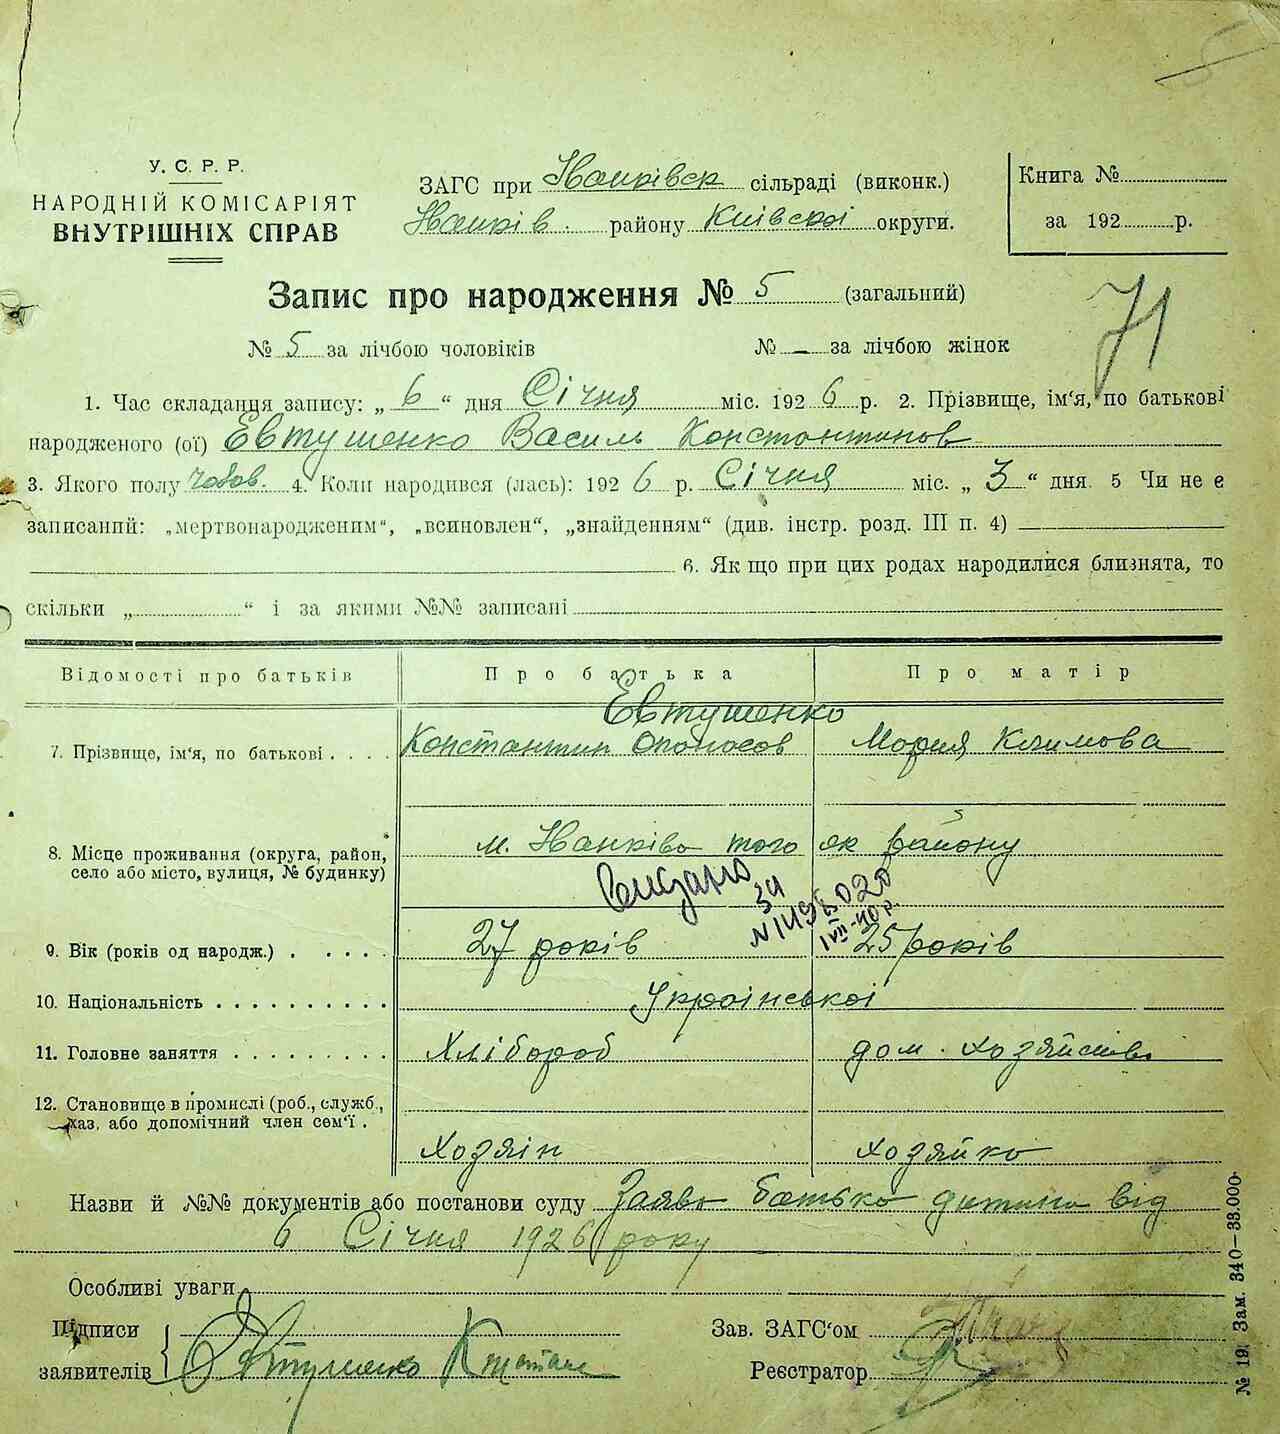 У. С. Р. Р.
НАРОДНІЙ КОМІСАРІЯТ
ВНУТРІШНІХ СПРАВ
ЗАГС при Іванківск сільраді (виконк.)
Іванків району Київскої округи.
Книга №
за 192 р.
Запис про народження № 5 (загальний)
71
№ 5 за лічбою чоловіків № — за лічбою жінок
1. Час складання запису: „ 6 “ дня Січня міс. 192 6 р. 2. Прізвище, ім'я, по батькові
народженого (ої) Евтушенко Василь Константинов
3. Якого полу чолов. 4. Коли народився (лась): 192 6 р. Січня міс. „ 3 “ дня. 5 Чи не є
записаний: „мертвонародженим“, „всиновлен“, „знайденням“ (див. інстр. розд. III п. 4)
6. Як що при цих родах народилися близнята, то
скільки „ “ і за якими №№ записані
Відомості про батьків Про батька Про матір
Евтушенко
7. Прізвище, ім'я, по батькові . . . . Константин Опонасов Мария Климова
8. Місце проживання (округа, район, село або місто, вулиця, № будинку) м. Іванків того як району
Видано
за
N 1495020
1 VII-40 р.
9. Вік (років од народж.) . . . . . 27 років 25 років
10. Національність . . . . . . . . . . Української
11. Головне заняття . . . . . . . . . Хлібороб дом. хозяйство
12. Становище в промислі (роб., служб.,
хаз. або допомічний член сем'ї . Хозяін хозяйка
Назви й №№ документів або постанови суду Заява батька дитини від
6 Січня 1926 року
Особливі уваги
Підписи
заявителів Евтушенко
Зав. ЗАГС'ом
Реєстратор
№ 19. Зам. 340—33.000